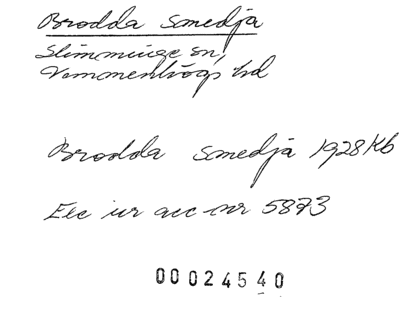 Brodda smedja
Slimminge sn,
Vemmenhögs hd
Brodda smedja 1928 Kb
Exc ur acc nr 5873
00024540